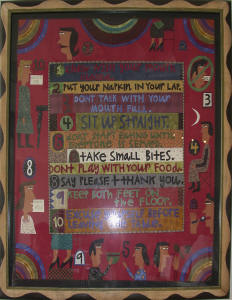 2 PUT YOUR NAPKIN IN YOUR LAP.
DONT TALK WITH YOUR
MOUTH FULL.
4 SIT UP STRAIGHT.
DON'T START EATING UNTIL
EVERYONE IS SERVED.
TAKE SMALL BITES.
DON'T PLAY WITH YOUR FOOD.
8 SAY PLEASE + THANK YOU.
9 KEEP BOTH FEET ON
THE FLOOR.
10
BEFORE
3
8
9